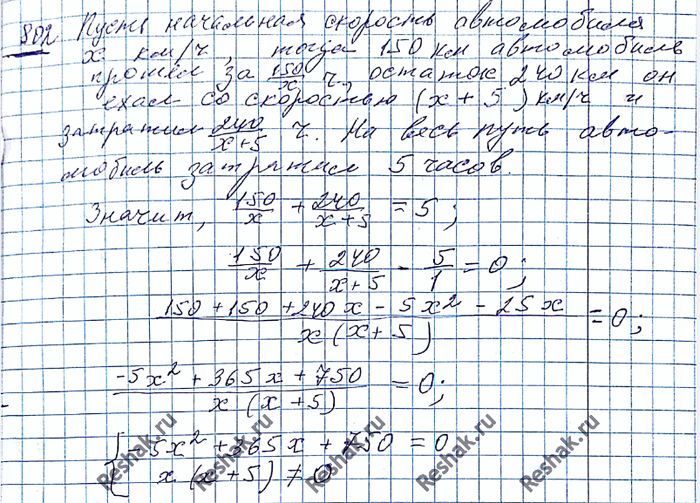 802 Пусть начальная скорость автомобиля
x км/ч, тогда 150 км автомобиль
прошёл за 150/x ч, остаток 240 км он
ехал со скоростью (x + 5) км/ч и
затратил 240/(x+5) ч. На весь путь авто-
мобиль затратил 5 часов.
Значит, 150/x + 240/(x+5) = 5;
150/x + 240/(x+5) - 5/1 = 0;
(150 + 150 + 240x - 5x² - 25x)/(x(x+5)) = 0;
(-5x² + 365x + 750)/(x(x+5)) = 0;
{-5x² + 365x + 750 = 0
x(x+5) ≠ 0
Reshak.ru Reshak.ru Reshak.ru Reshak.ru Reshak.ru